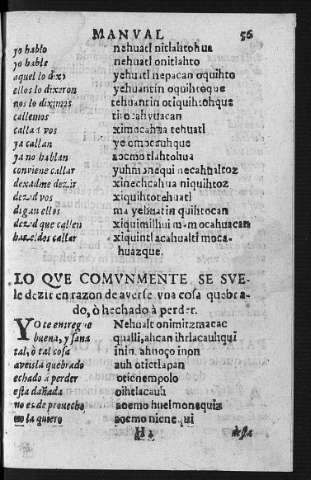 MANVAL 56
yo hablo nehuatl nitlahtohua
yo hable nehuatl onitlahto
aquel lo dixo yehuatl nepacan oquihto
ellos lo dixeron yehuantin oquihtoque
nos lo diximos tehuantin otiquihtohque
callemos
callad vos ximocahua tehuatl
ya callan ye omocauhque
ya no hablan aocmo tlahtohua
conviene callar yuhmonequi necahualtoz
dexadme dezir xinechcahua niquihtoz
dezid vos xiquihtotehuatl
digan ellos ma yehuatin quihtocan
dezid que callen xiquimilhui mamocahuacan
hazeldos callar xiquintlacahualti moca-
huazque.
LO QVE COMVNMENTE SE SVE-
le dezir en razon de averse vna cosa quebra-
do, ò hechado à perder.
YO te entregue Nehualt onimitzmacac
buena, y sana qualli, ahcan ihtlacauhqui
tal, ò tal cosa inin, ahnoço inon
aveisla quebrado auh otictlapan
echado à perder oticnenpolo
esta dañada oihtlacauh
no es de prouecho aocmo huelmonequiz
no la quiero aocmo nicnequi
H2 desta